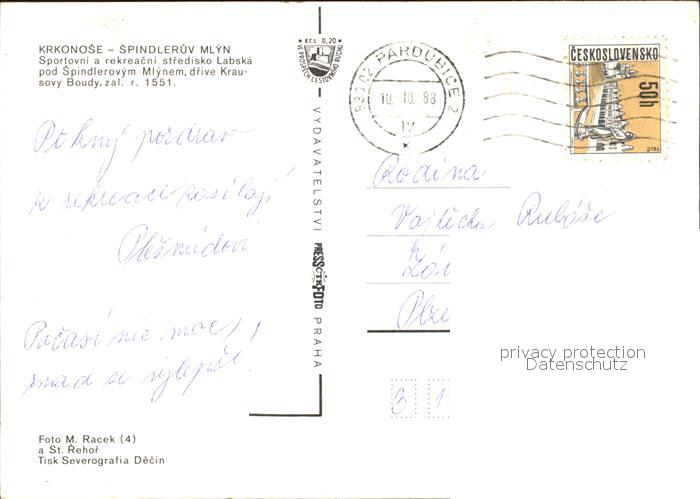 KRKONOŠE – ŠPINDLERŮV MLÝN
Sportovní a rekreační středisko Labská
pod Špindlerovým Mlýnem, dříve Krau-
sovy Boudy, zal. r. 1551.
Pěkný pozdrav
z rekreace posílají
Počasí nic moc,
snad se vylepší!
Foto M. Racek (4)
a St. Řehoř
Tisk Severografia Děčín
Kčs 0,20
VE PROSPĚCH CESTOVNÍHO RUCHU
VYDAVATELSTVÍ
PRESSFOTO
PRAHA
PARDUBICE 2
10. 10. 88
17
ČESKOSLOVENSKO
50h
TELČ
Rodina
Vojtěcha
Plze
3 1
privacy protection
Datenschutz